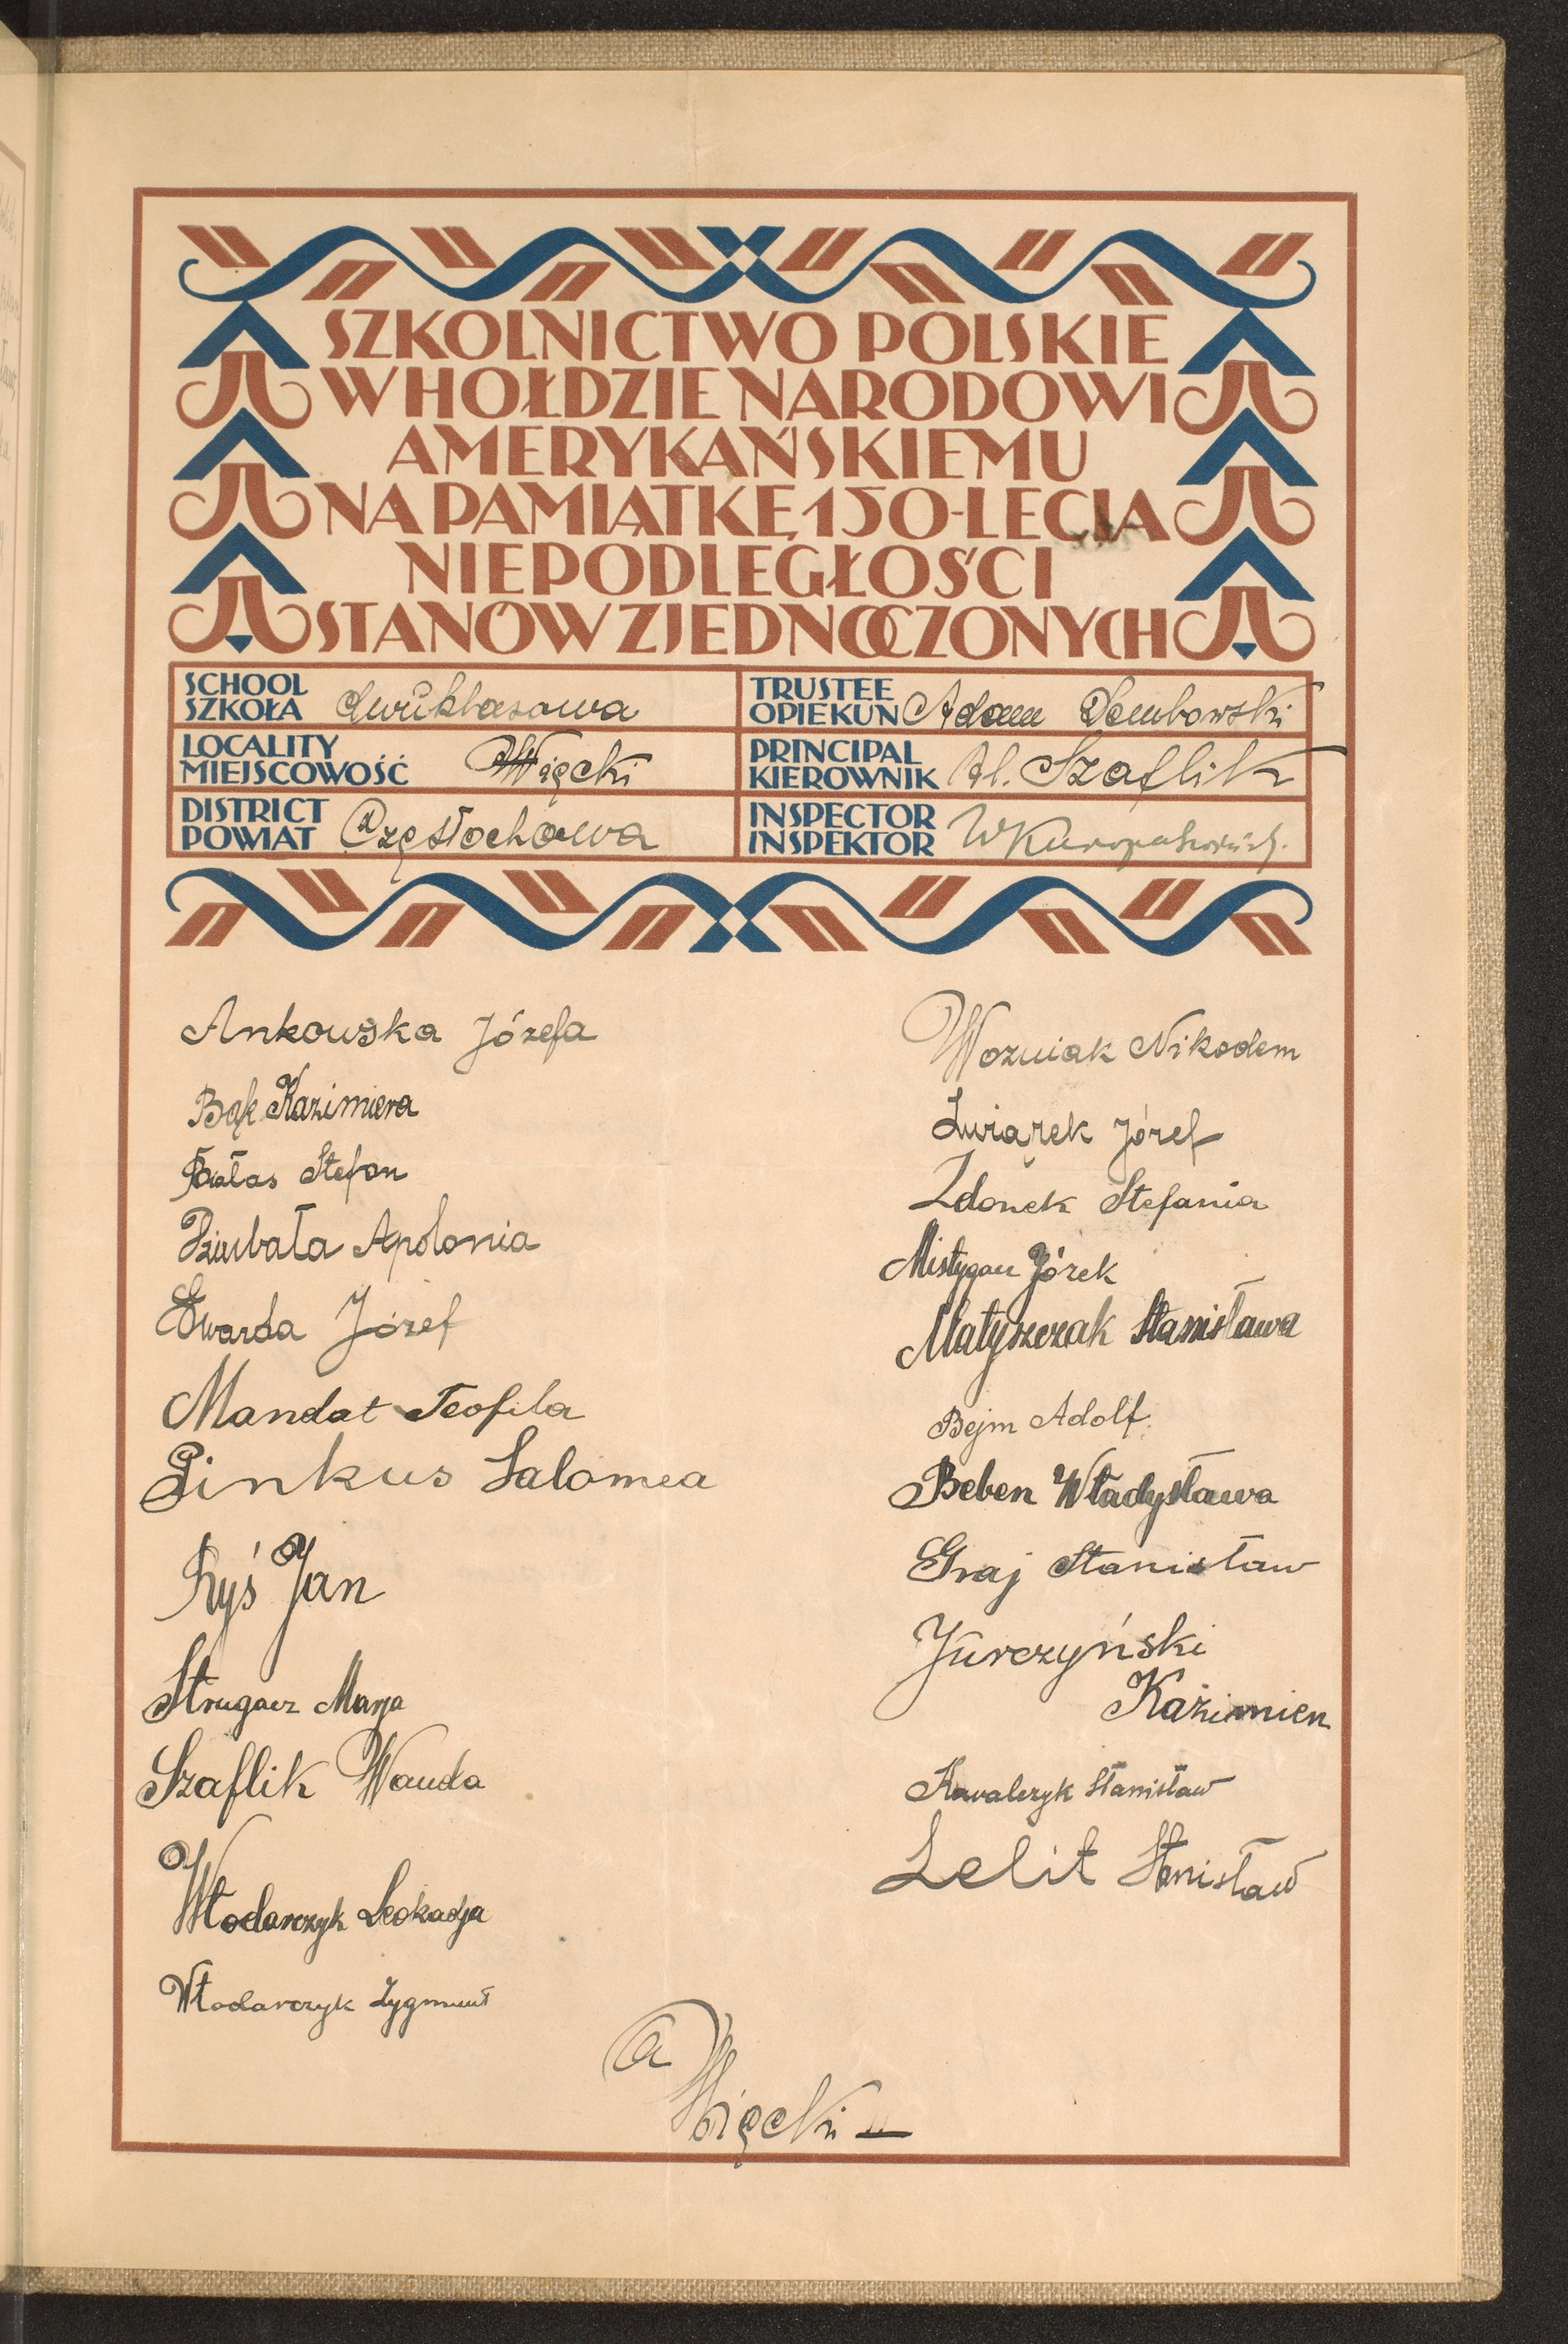 SZKOLNICTWO POLSKIE
W HOŁDZIE NARODOWI
AMERYKAŃSKIEMU
NA PAMIĄTKĘ 150-LECIA
NIEPODLEGŁOŚCI
STANÓW ZJEDNOCZONYCH
SCHOOL
SZKOŁA dwuklasowa
TRUSTEE
OPIEKUN Adam Dembowski
LOCALITY
MIEJSCOWOŚĆ Więcki
PRINCIPAL
KIEROWNIK Al. Szaflik
DISTRICT
POWIAT Częstochowa
INSPECTOR
INSPEKTOR
Ankowska Józefa
Bąk Kazimiera
Białas Stefan
Dziubała Apolonia
Gwarda Józef
Mandat Teofila
Pinkus Salomea
Ryś Jan
Strugacz Marja
Szaflik Wanda
Włodarczyk Leokadja
Włodarczyk Zygmunt
Wozniak Nikodem
Związek Józef
Zdonek Stefania
Mistygacz Józek
Matyszczak Stanisława
Bejm Adolf
Beben Władysława
Graj Stanisław
Jurczyński
Kazimierz
Kowalczyk Stanisław
Lelit Stanisław
Więcki